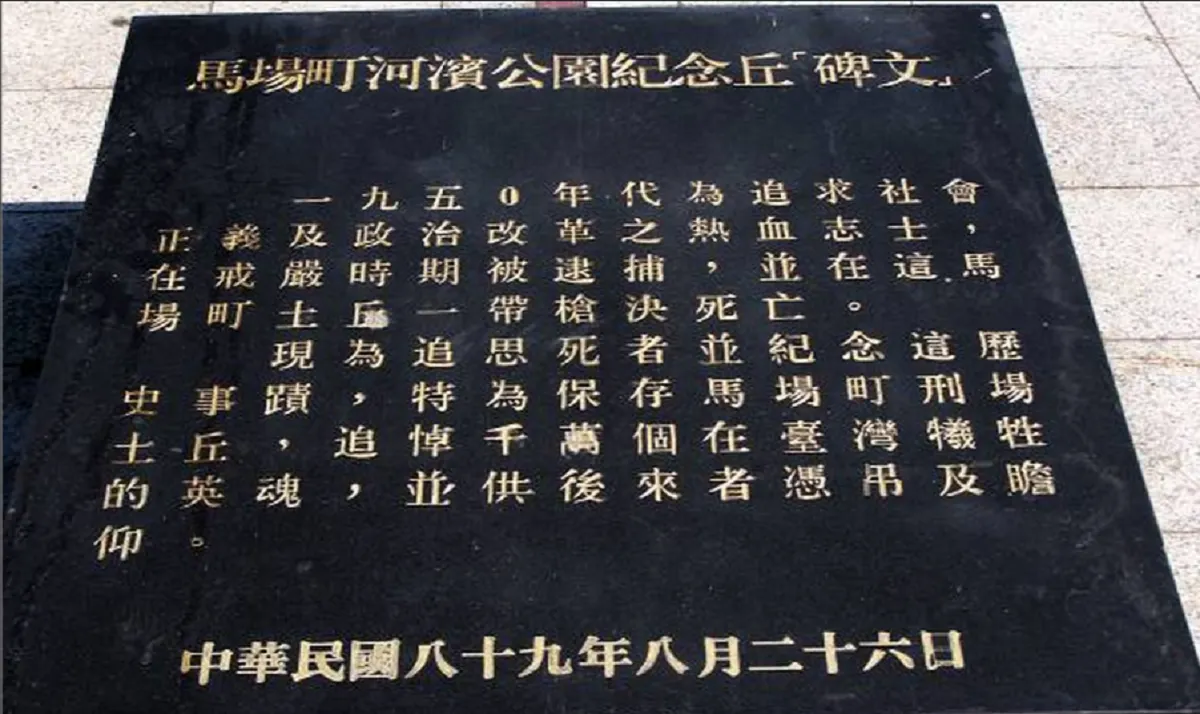 馬場町河濱公園紀念丘「碑文」
一九五0年代為追求社會
正義及政治改革之熱血志士，
在戒嚴時期被逮捕，並在這馬
場町土丘一帶槍決死亡。
現為追思死者並紀念這歷
史事蹟，特為保存馬場町刑場
士丘，追悼千萬個在臺灣犧牲
的英魂，並供後來者憑吊及瞻
仰。
中華民國八十九年八月二十六日